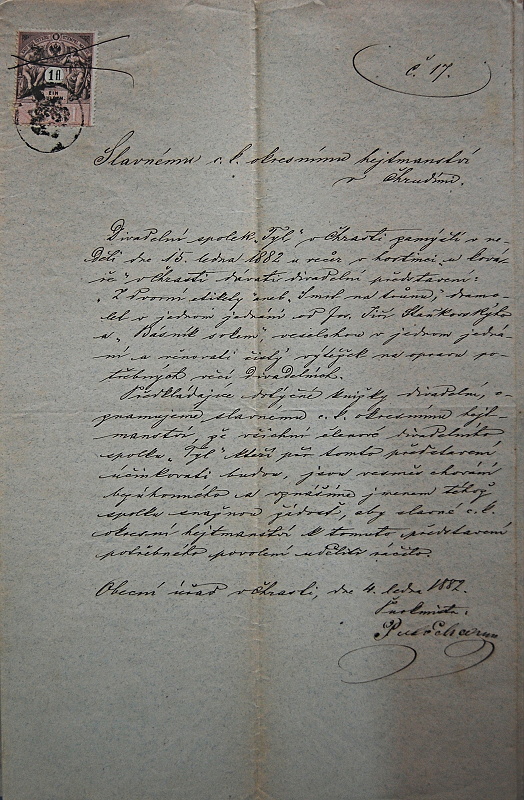 1 fl
EIN
č. 17.
Slavnému c. k. okresnímu hejtmanství
v Chrudimi.
Divadelní spolek „Tyl“ v Chrasti pamýšlí v ne-
děli dne 15. ledna 1882 u večer v hostinci „u Kova-
v Chrasti dávati divadelní představení:
„Z dvorní etikety aneb „Smrt na trůnu“, dramo-
let v jednom jednání od Jos. Jiř. Staňkovského
a „Básník solem“, veselohou v jednom jedná-
ní a věnovati čistý výtěžek na opravu po-
třebných věcí divadelních.
Předkládajíce dotyčné knížky divadelní, o-
znamujeme slavnému c. k. okresnímu hejt-
manství, že všichni členové divadelního
spolku „Tyl“ kteří při tomto představení
účinkovati budou, jsou vesměs chování
bezúhonného a vznášíme jmenem téhož
spolku snažnou žádost, aby slavné c. k.
okresní hejtmanství k tomuto představení
potřebného povolení uděliti ráčilo.
Obecní úřad v Chrasti, dne 4. ledna 1882.
Purkmistr: